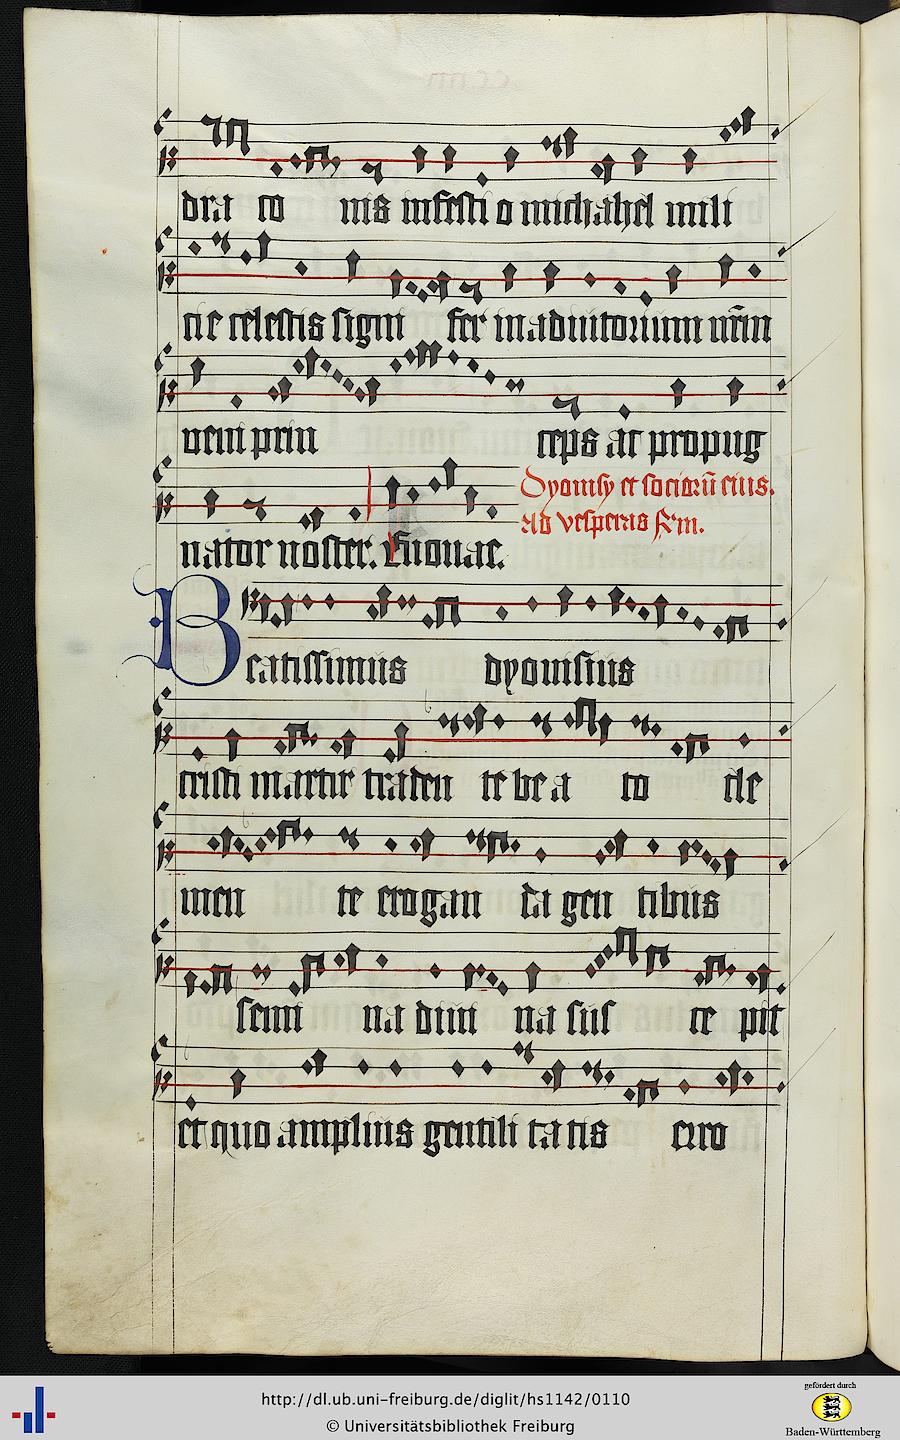 dra co nis infesti o michahel mili
cie celestis signi fer in adiutorium nr̄m
veni prin ceps ac propug
nator noster. Euouae.
Dyonisy et socioru᷑ eius.
Ad vesperas
Beatissimus dyonisius
cristi martir traden te be a to cle
men te erogan da gen tibus
semi na diui na sus ce pit
et quo amplius gentili ta tis erro
http://dl.ub.uni-freiburg.de/diglit/hs1142/0110
© Universitätsbibliothek Freiburg
gefördert durch
Baden-Württemberg